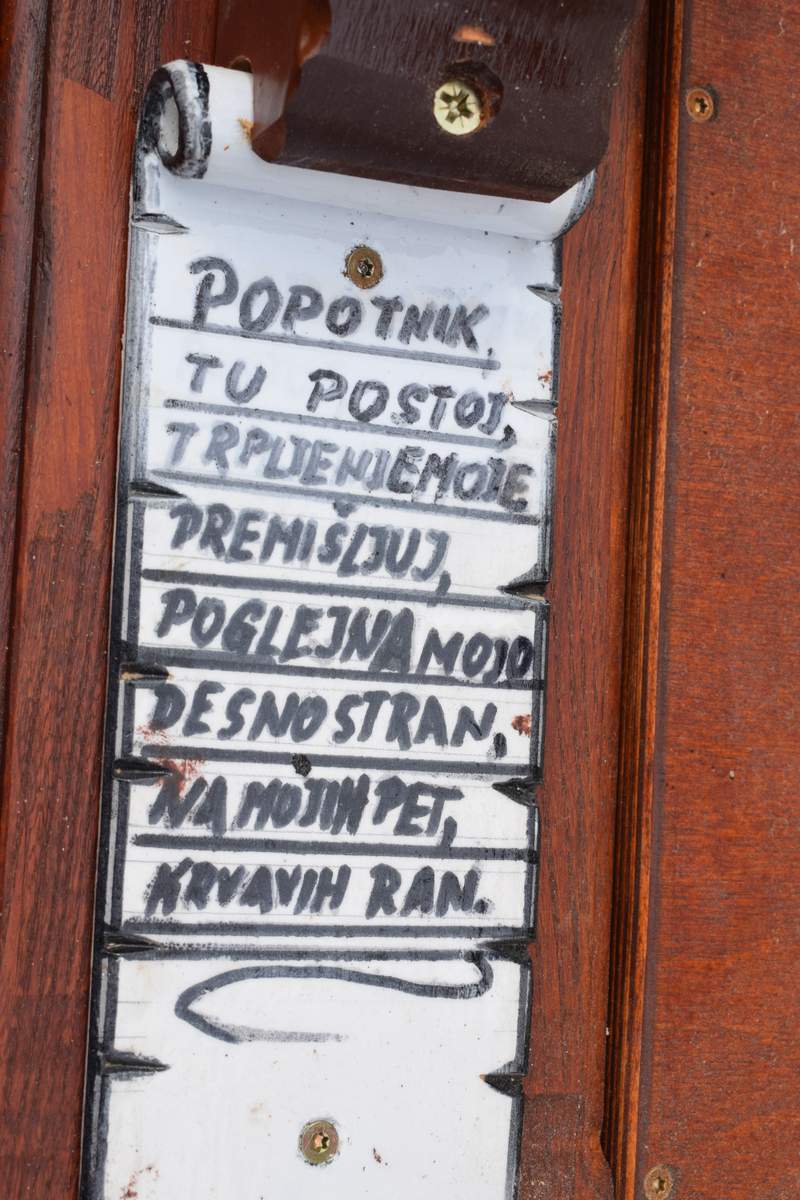 POPOTNIK,
TU POSTOJ,
TRPLJENJE MOJE
PREMIŠLJUJ,
POGLEJ NA MOJO
DESNO STRAN,
NA MOJIH PET,
KRVAVIH RAN.